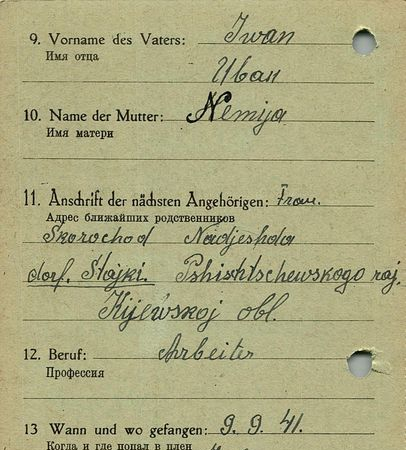 9. Vorname des Vaters: Iwan
Имя отца
Uban
10. Name der Mutter: Nemija
Имя матери
11. Anschrift der nächsten Angehörigen: Frau.
Адрес ближайших родственников
Skorochod Nadjeshda
dorf. Stajki. Pshishtschewskogo raj.
Kijewskoj obl.
12. Beruf: Arbeiter
Профессия
13 Wann und wo gefangen: 9. 9. 41.
Когда и где попал в плен